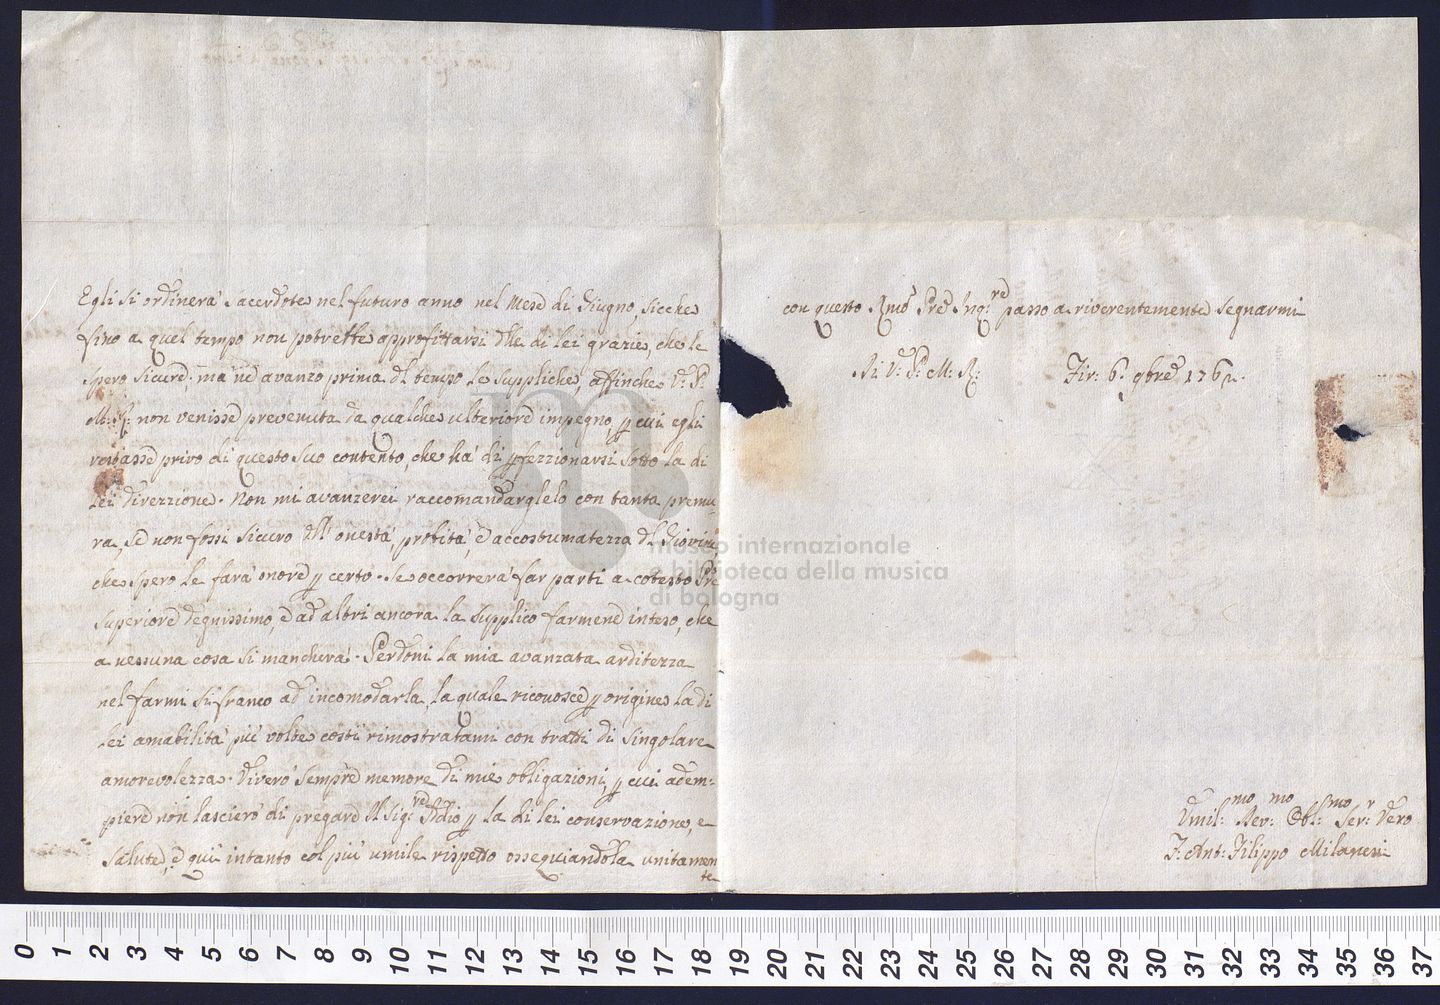 Egli si ordinerà Sacerdote nel futuro anno nel Mese di Giugno, sicche
fino a quel tempo non potrebbe approfittarsi dlle di lei grazie, che le
spero sicure; ma ne avanzo prima dl tempo le suppliche, affinche V: P:
M: R: non venisse prevenuta da qualche ulteriore impegno, p cui egli
restasse privo di questo suo contento, che hà di pfezzionarsi sotto la di
lei direzzione. Non mi avanzerei raccomandarglelo con tanta premu
ra, se non fossi sicuro dll' onestà, probità, e accostumatezza dl Giovine,
che spero le farà onore p certo. Se occorrerà far parti a cotesto Pre
Superiore degnissimo, e ad altri ancora la supplico farmene inteso, che
a nessuna cosa si mancherà. Perdoni la mia avanzata arditezza
nel farmi si franco ad incomodarla, la quale riconosce p origine la di
Lei amabilità più volte costì rimostratami con tratti di singolare
amorevolezza. Viverò sempre memore di mie obligazioni, p cui adem-
piere non lascierò di pregare il Sig:re Iddio p la di lei conservazione, e
salute, e quì intanto col più umile rispetto ossequiandola unitamen
te
con questo Rmo Pre Inq:re passo a riverentemente segnarmi
Di V: P: M: R: Fir: 6. 9bre 1762.
Umil:mo Rev:mo Obl:mo Ser:r Vero
F: Ant: Filippo Milaneri
museo internazionale
e biblioteca della musica
di bologna
0 1 2 3 4 5 6 7 8 9 10 11 12 13 14 15 16 17 18 19 20 21 22 23 24 25 26 27 28 29 30 31 32 33 34 35 36 37